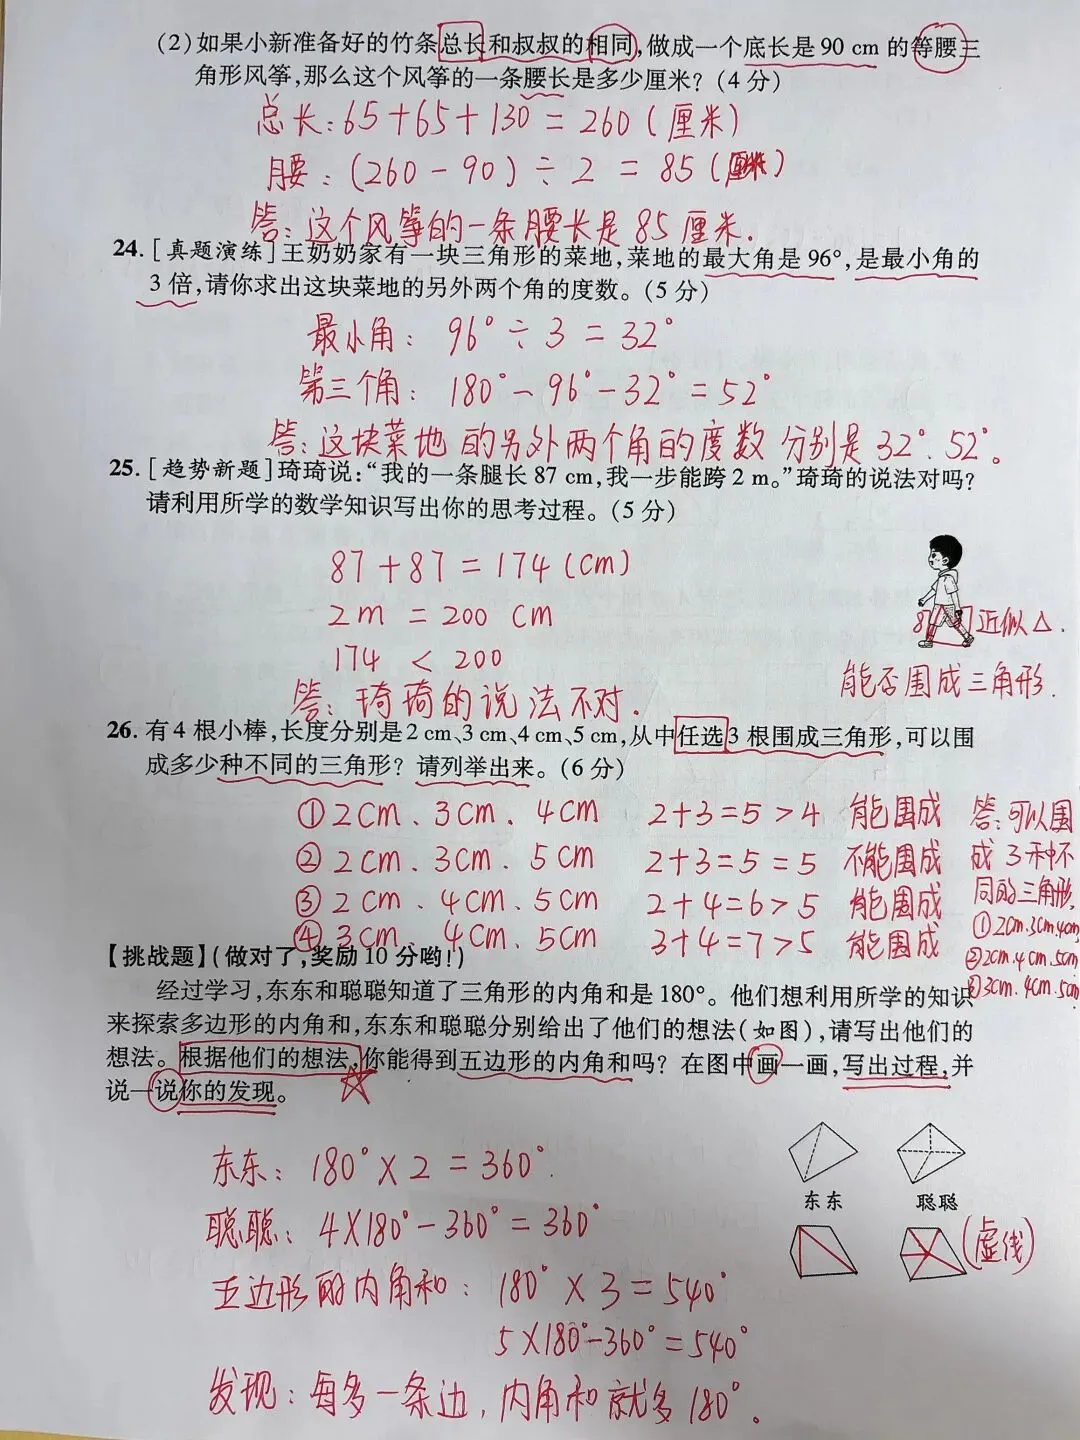 (2)如果小新准备好的竹条总长和叔叔的相同,做成一个底长是90 cm 的等腰三
角形风筝,那么这个风筝的一条腰长是多少厘米?(4分)
总长:65+65+130=260(厘米)
腰:(260-90)÷2=85(厘米)
答:这个风筝的一条腰长是85厘米.
24.[真题演练]王奶奶家有一块三角形的菜地,菜地的最大角是96°,是最小角的
3倍,请你求出这块菜地的另外两个角的度数。(5分)
最小角:96°÷3=32°
第三个角:180°-96°-32°=52°
答:这块菜地的另外两个角的度数分别是32°.52°。
25.[趋势新题]琦琦说:“我的一条腿长87 cm,我一步能跨2 m。”琦琦的说法对吗?
请利用所学的数学知识写出你的思考过程。(5分)
87+87=174(cm)
2m=200 cm
174<200
答:琦琦的说法不对.
87
近似△.
能否围成三角形.
26.有4根小棒,长度分别是2 cm、3 cm、4 cm、5 cm,从中任选3根围成三角形,可以围
成多少种不同的三角形?请列举出来。(6分)
①2cm、3cm、4cm 2+3=5>4 能围成
②2cm.3cm.5cm 2+3=5=5 不能围成
③2cm.4cm.5cm 2+4=6>5 能围成
④3cm、4cm、5cm 3+4=7>5 能围成
答:可以围
成3种不
同的三角形,
①2cm.3cm.4cm
②2cm.4cm.5cm
③3cm.4cm.5cm
【挑战题】(做对了,奖励10分哟!)
经过学习,东东和聪聪知道了三角形的内角和是180°。他们想利用所学的知识
来探索多边形的内角和,东东和聪聪分别给出了他们的想法(如图),请写出他们的
想法。根据他们的想法,你能得到五边形的内角和吗?在图中画一画,写出过程,并
说一说你的发现。
东东:180°×2=360°.
聪聪:4×180°-360°=360°
五边形的内角和:180°×3=540°
5×180°-360°=540°
发现:每多一条边,内角和就多180°。
东东 聪聪
(虚线)